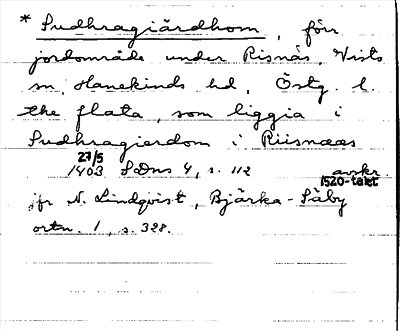 * Sudhragiärdhom, förr
jordområde under Risnäs, Vists
sn, Hanekinds hd, Östg. l.
the flata, som liggia i
Sudhragierdom i Riisnæs
27/5
1403 SDns 4, s. 112 avskr.
1520-talet
jfr N. Lindqvist, Bjärka-Säby
ortn. 1, s. 328.